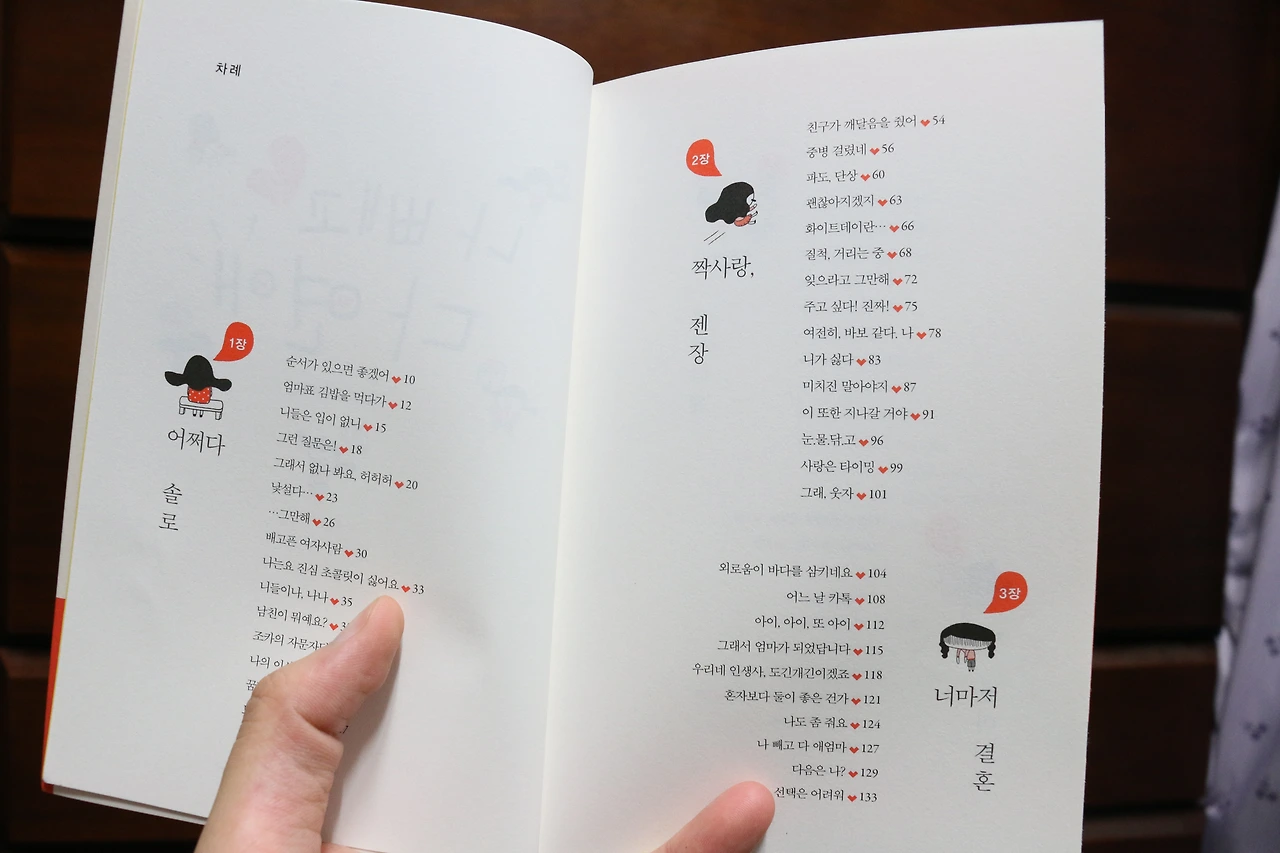 차례
1장
어쩌다
솔
로
순서가 있으면 좋겠어 ♥ 10
엄마표 김밥을 먹다가 ♥ 12
니들은 입이 없니 ♥ 15
그런 질문은! ♥ 18
그래서 없나 봐요, 허허허 ♥ 20
낯설다… ♥ 23
…그만해 ♥ 26
배고픈 여자사람 ♥ 30
나는요 진심 초콜릿이 싫어요 ♥ 33
니들이나, 나나 ♥ 35
남친이 뭐예요? ♥
조카의 자문자
나의
2장
짝사랑,
젠
장
친구가 깨달음을 줬어 ♥ 54
중병 걸렸네 ♥ 56
파도, 단상 ♥ 60
괜찮아지겠지 ♥ 63
화이트데이란… ♥ 66
질척, 거리는 중 ♥ 68
잊으라고 그만해 ♥ 72
주고 싶다! 진짜! ♥ 75
여전히, 바보 같다, 나 ♥ 78
니가 싫다 ♥ 83
미치진 말아야지 ♥ 87
이 또한 지나갈 거야 ♥ 91
눈.물.닦.고 ♥ 96
사랑은 타이밍 ♥ 99
그래, 웃자 ♥ 101
3장
너마저
결
혼
외로움이 바다를 삼키네요 ♥ 104
어느 날 카톡 ♥ 108
아이, 아이, 또 아이 ♥ 112
그래서 엄마가 되었답니다 ♥ 115
우리네 인생사, 도긴개긴이겠죠 ♥ 118
혼자보다 둘이 좋은 건가 ♥ 121
나도 좀 줘요 ♥ 124
나 빼고 다 애엄마 ♥ 127
다음은 나? ♥ 129
선택은 어려워 ♥ 133